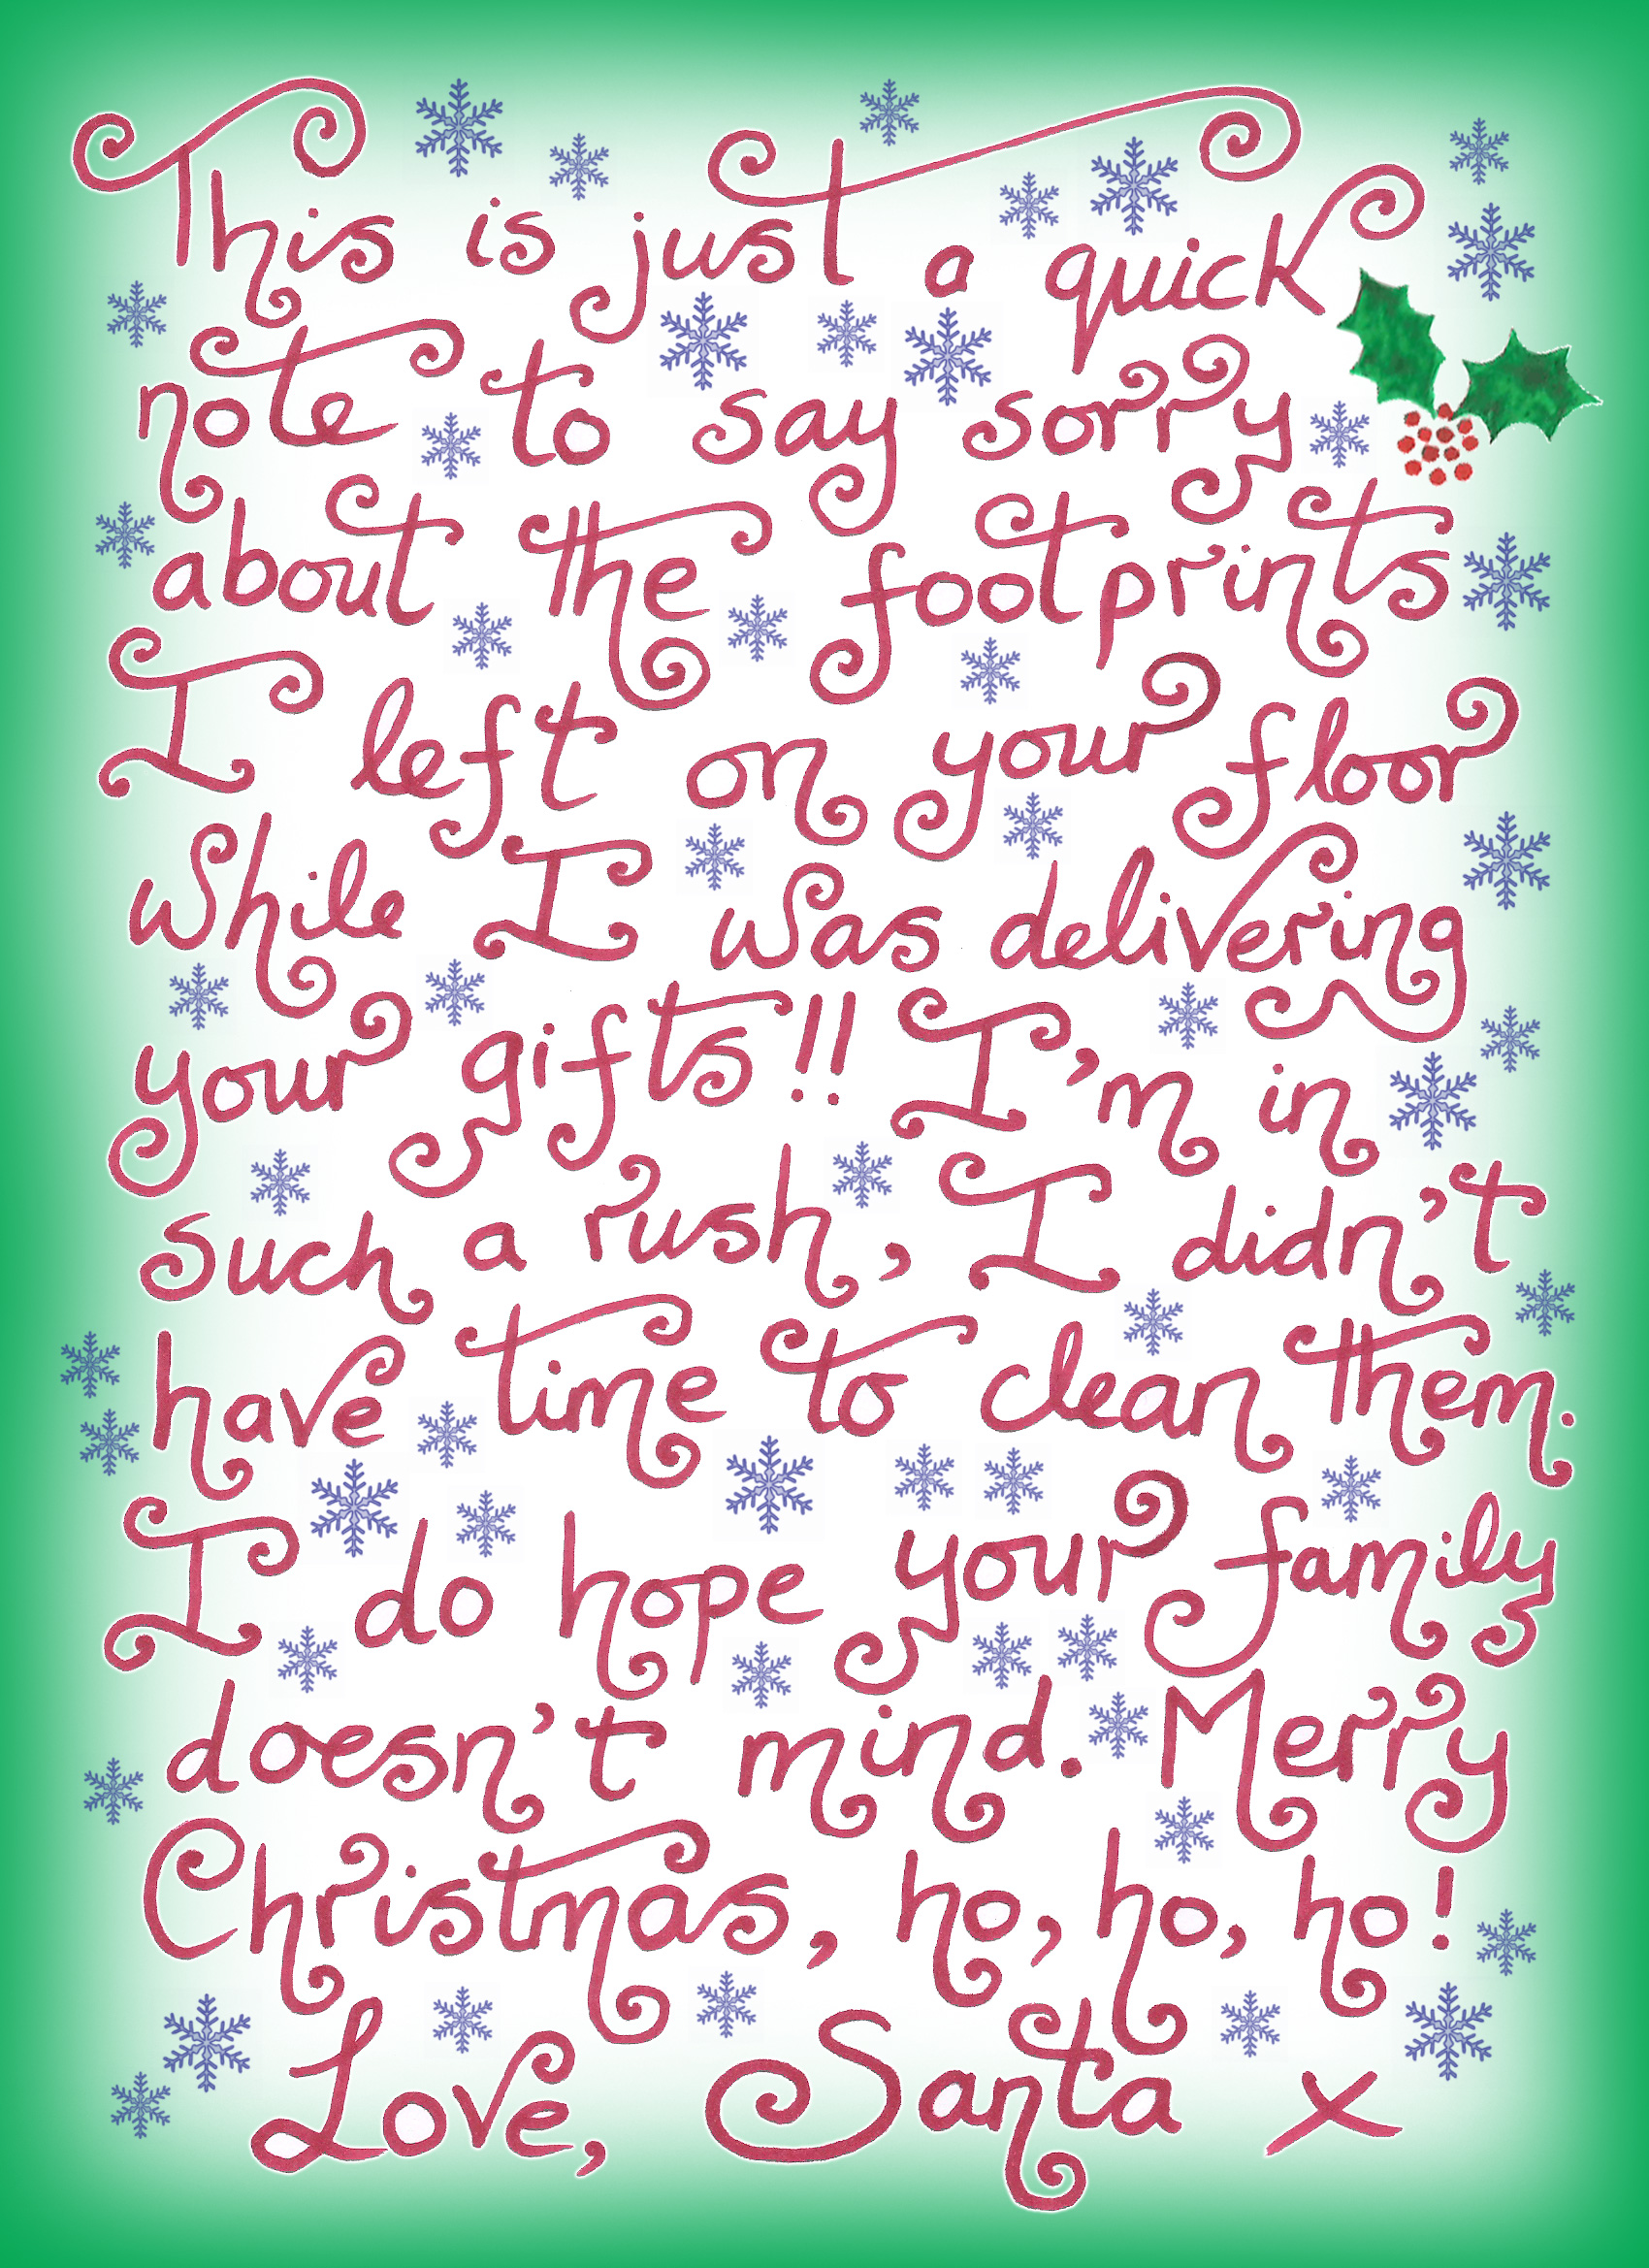 This is just a quick
note to say sorry
about the footprints
I left on your floor
while I was delivering
your gifts!! I'm in
such a rush, I didn't
have time to clean them.
I do hope your family
doesn't mind. Merry
Christmas, ho, ho, ho!
Love, Santa x